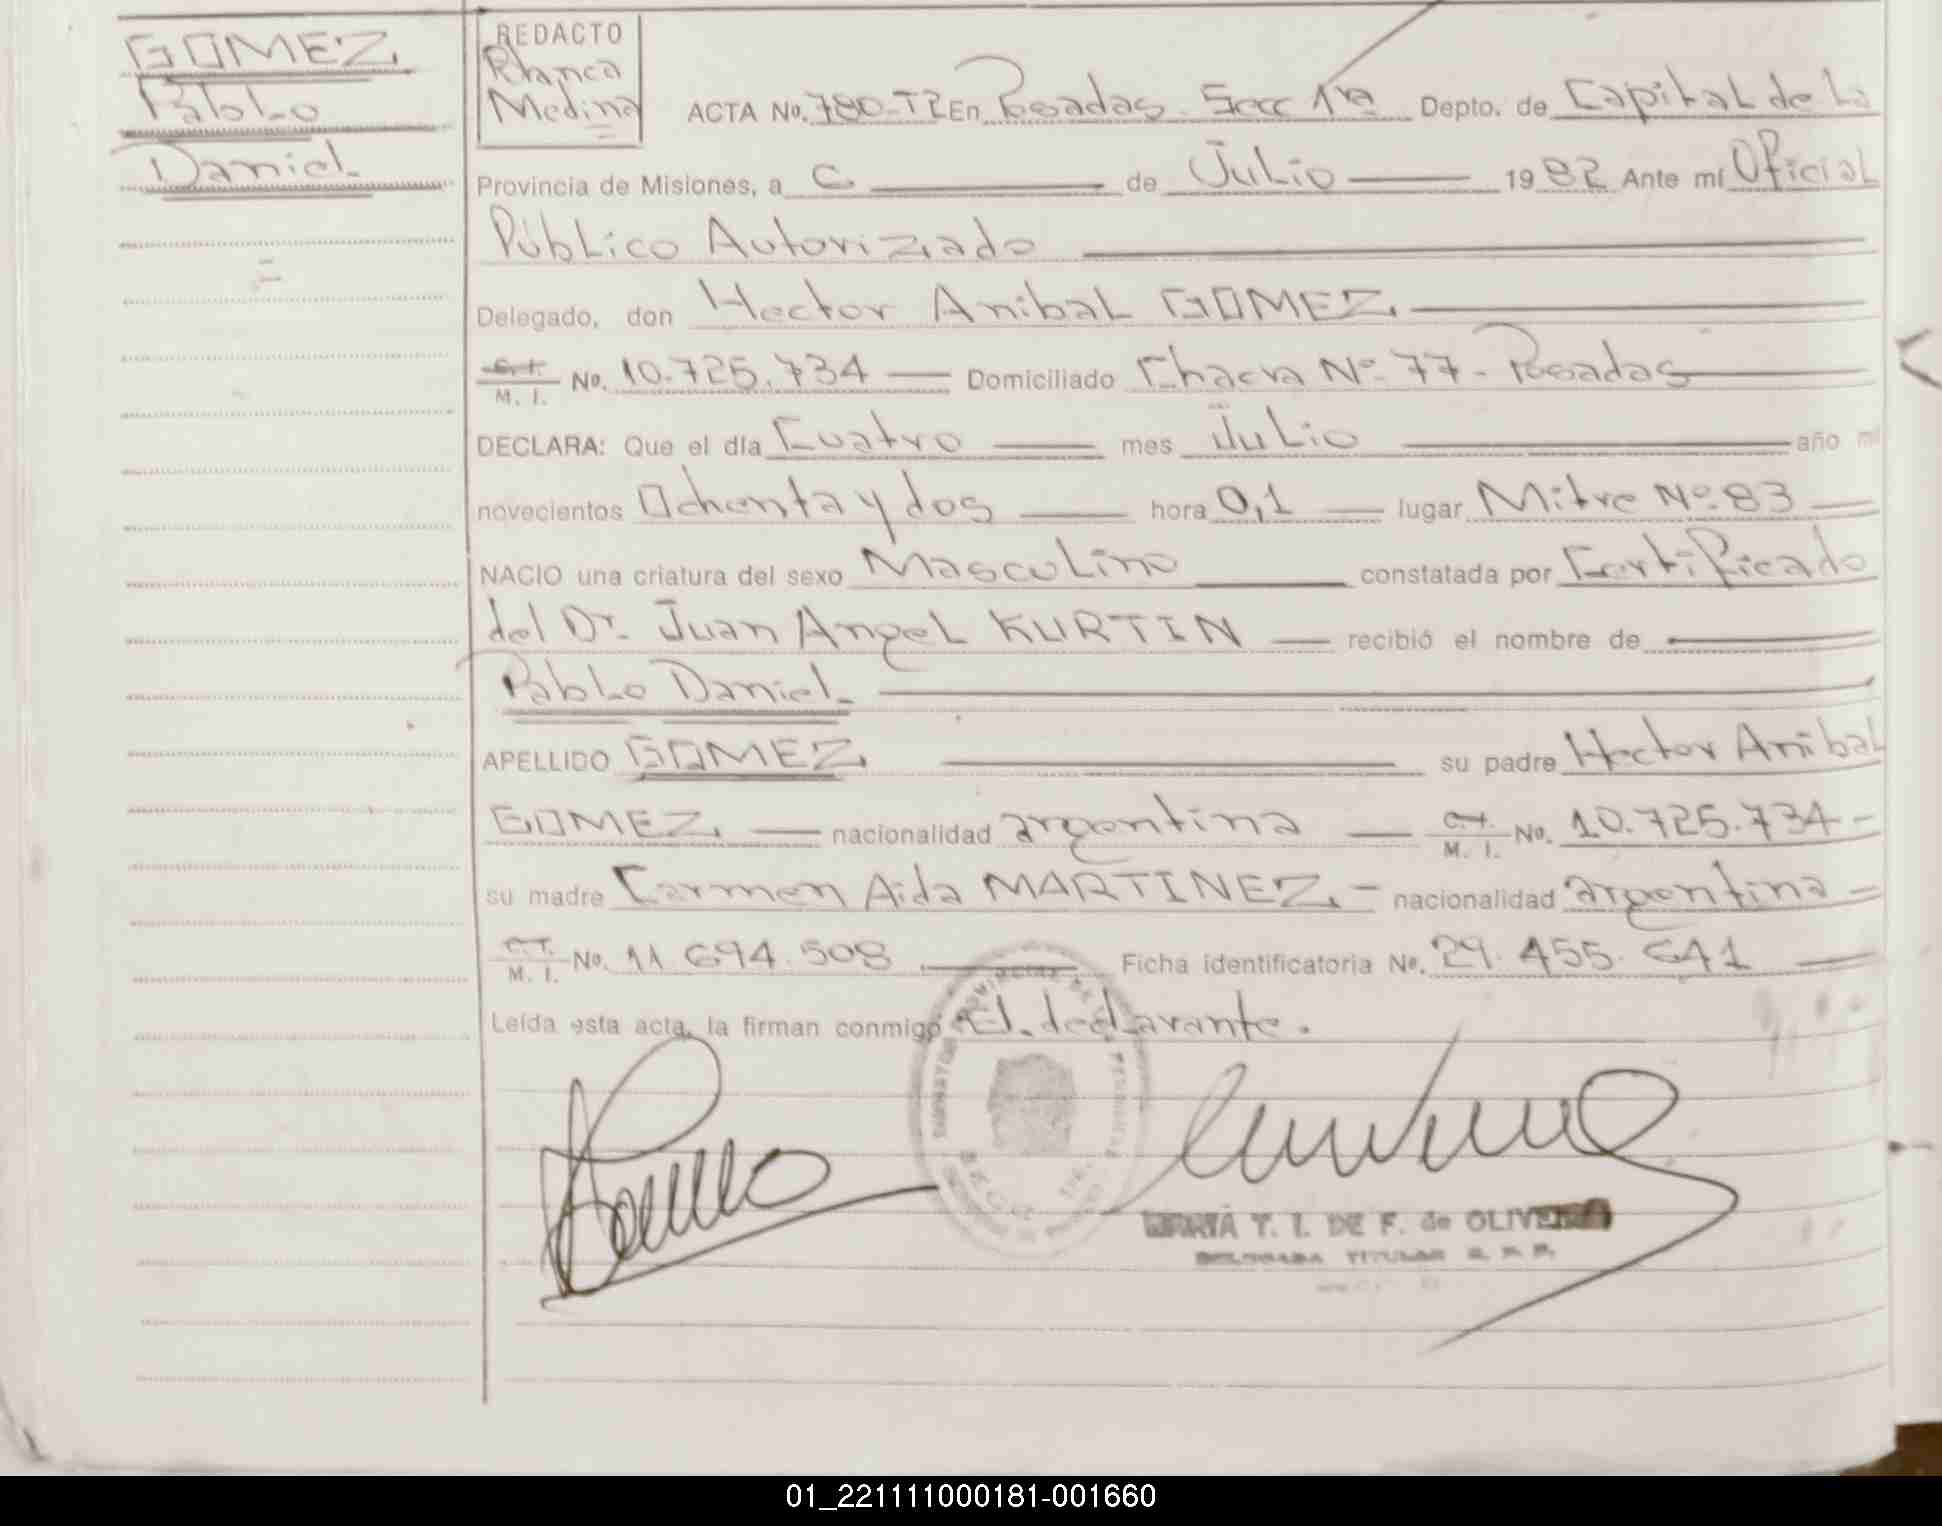 GOMEZ
Pablo
Daniel
REDACTO
Blanca
Medina
ACTA No. 780-T2 En Posadas. Secc 1ra Depto. de Capital de La
Provincia de Misiones, a 6 de Julio 1982 Ante mí Oficial
Público Autorizado
Delegado, don Hector Anibal GOMEZ
C.I. M. I. No. 10.725.734 Domiciliado Chacra Nº 77 - Posadas
DECLARA: Que el día Cuatro mes Julio año mi
novecientos Ochenta y dos hora 0,1 lugar Mitre Nº 83
NACIO una criatura del sexo Masculino constatada por Certificado
del Dr. Juan Angel KURTIN recibió el nombre de
Pablo Daniel
APELLIDO GOMEZ su padre Hector Anibal
GOMEZ nacionalidad argentina C.I. M. I. No. 10.725.734
su madre Carmen Aida MARTINEZ nacionalidad argentina
C.I. M. I. No. 11 694.508 Ficha identificatoria No. 29.455.641
Leída esta acta, la firman conmigo El declarante.
MARIA T. I. DE F. de OLIVEIRA
DELEGADA TITULAR R. P. P.
01_221111000181-001660